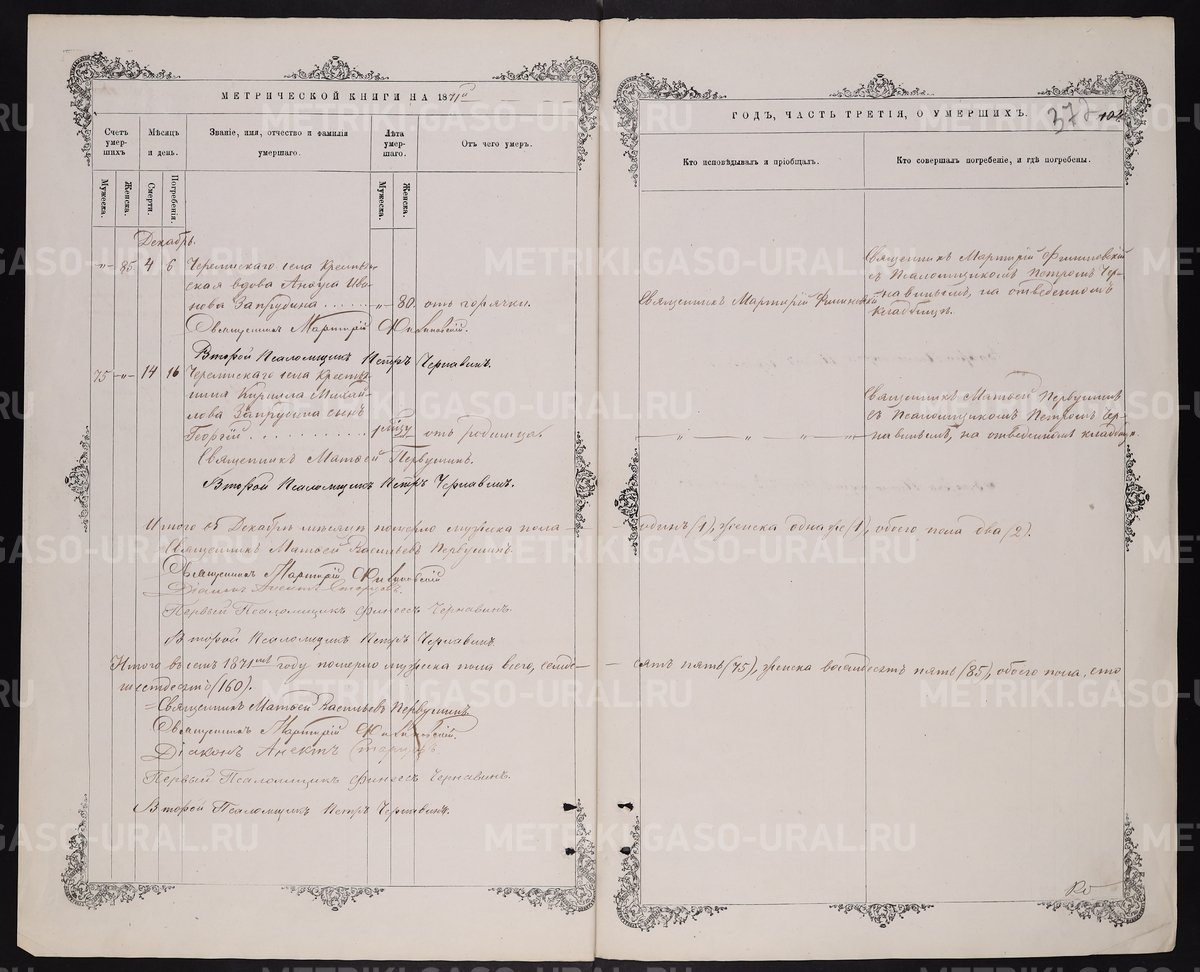 МЕТРИЧЕСКОЙ КНИГИ НА 1871й
Счетъ умер-шихъ
Мѣсяцъ и день.
Званіе, имя, отчество и фамилія умершаго.
Лѣта умер-шаго.
Отъ чего умеръ.
Мужеска.
Женска.
Смерти.
Погребенія.
Мужеска.
Женска.
Декабрь.
85 4 6 Черемискаго села Кресть-
ская вдова Анѳуса Ива-
нова Запрудина 80 отъ горячки.
Священникъ Мартирій
Второй Псаломщикъ Петръ Чернавинъ.
75 14 16 Черемискаго села Кресть-
янина Кирилла Михай-
лова Запрудина сынъ
Георгій отъ родимца.
Священникъ Матѳей Первушинъ.
Второй Псаломщикъ Петръ Чернавинъ.
Итого въ Декабрѣ мѣсяцѣ померло мужеска пола
Священникъ Матѳей Васильевъ Первушинъ.
Священникъ Мартирій
Діаконъ
Первый Псаломщикъ Финеесъ Чернавинъ.
Второй Псаломщикъ Петръ Чернавинъ.
Итого въ семъ 1871мъ году померло мужеска пола всего, семде-
шестдесятъ (160).
Священникъ Матѳей Васильевъ Первушинъ
Священникъ Мартирій
Діаконъ
Первый Псаломщикъ Финеесъ Чернавинъ.
Второй Псаломщикъ Петръ Чернавинъ.
ГОДЪ, ЧАСТЬ ТРЕТІЯ, О УМЕРШИХЪ.
104
Кто исповѣдывалъ и пріобщалъ.
Кто совершалъ погребеніе, и гдѣ погребены.
Священникъ Мартирій
Священникъ Мартирій
съ Псаломщикомъ Петромъ Чер-
навинымъ, на отведенномъ
кладбищѣ.
Священникъ Матѳей Первушинъ
съ Псаломщикомъ Петромъ Чер-
навинымъ, на отведенномъ кладбищѣ.
одинъ (1), женска одна (1), обоего пола два (2).
сятъ пять (75), женска восемдесятъ пять (85), обоего пола, сто
METRIKI.GASO-URAL.RU